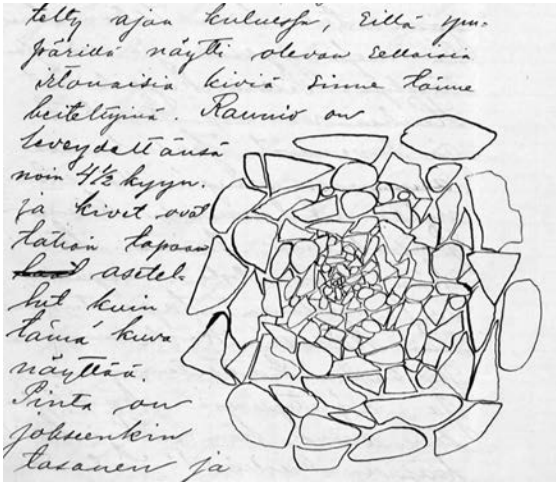 telty ajan kuluessa, sillä ym-
pärillä näytti olevan sellaisia
irtonaisia kiviä sinne tänne
heiteltyinä. Raunio on
leveydeltänsä
noin 4½ kyyn.
ja kivet ovat
tähän tapaan
asetel-
lut kuin
tämä kuva
näyttää.
Pinta on
jokseenkin
tasanen ja